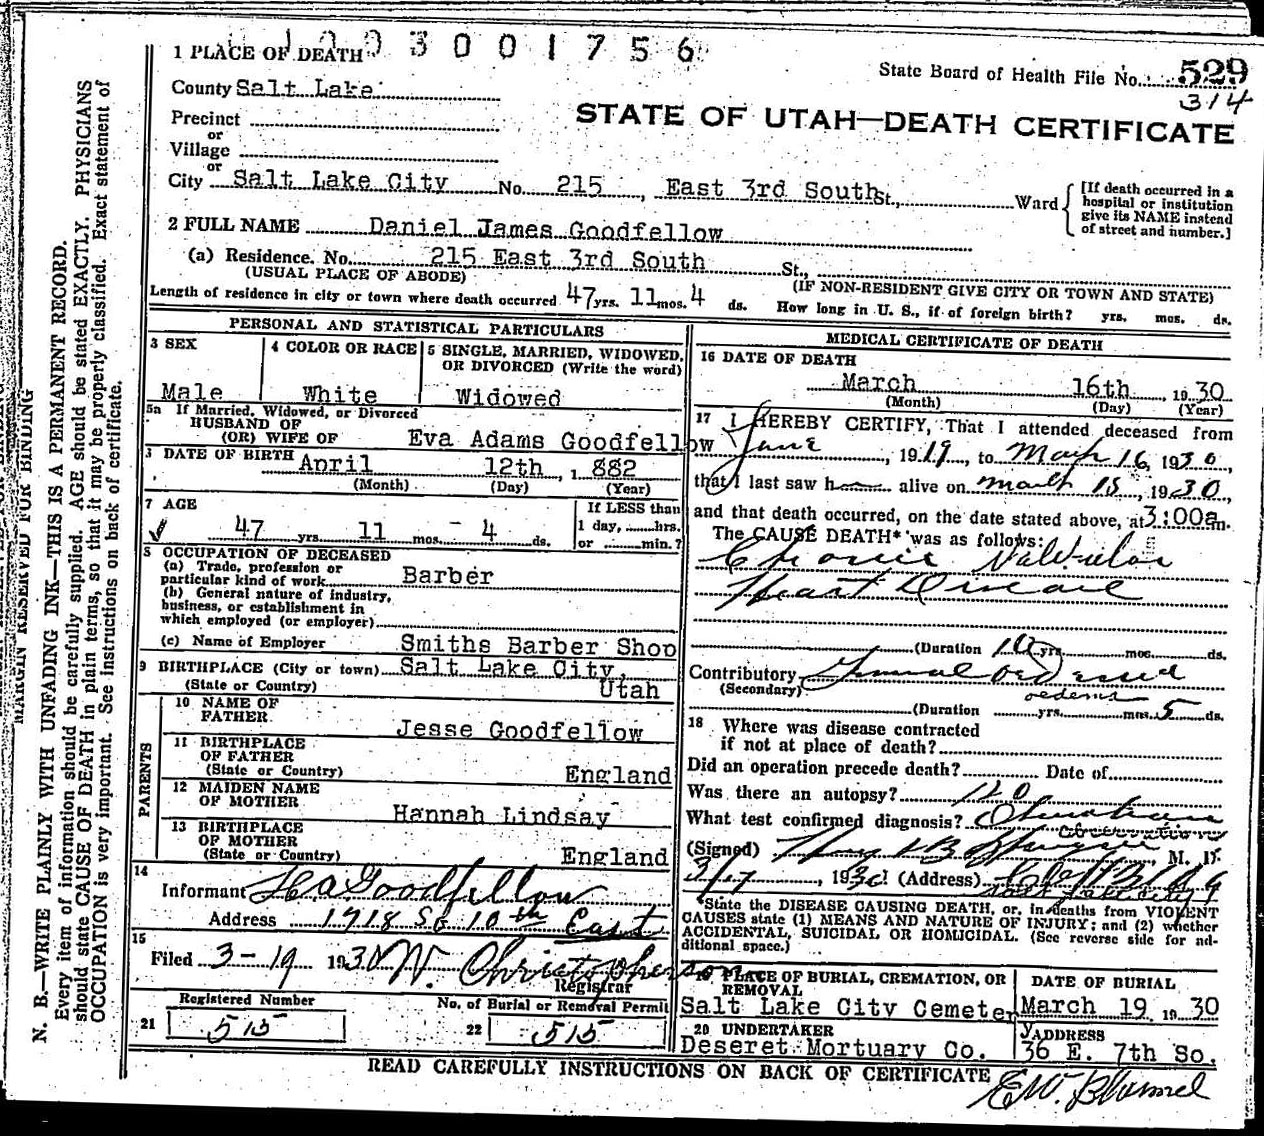 1 0 0 3 0 0 1 7 5 6
1 PLACE OF DEATH
State Board of Health File No. 529
314
County Salt Lake
STATE OF UTAH—DEATH CERTIFICATE
Precinct
or
Village
or
City Salt Lake City No. 215, East 3rd South St., Ward
[If death occurred in a hospital or institution give its NAME instead of street and number.]
2 FULL NAME Daniel James Goodfellow
(a) Residence. No. 215 East 3rd South St.,
(USUAL PLACE OF ABODE) (IF NON-RESIDENT GIVE CITY OR TOWN AND STATE)
Length of residence in city or town where death occurred 47 yrs. 11 mos. 4 ds. How long in U. S., if of foreign birth? yrs. mos. ds.
PERSONAL AND STATISTICAL PARTICULARS
3 SEX
Male
4 COLOR OR RACE
White
5 SINGLE, MARRIED, WIDOWED,
OR DIVORCED (Write the word)
Widowed
5a If Married, Widowed, or Divorced
HUSBAND OF
(OR) WIFE OF Eva Adams Goodfellow
DATE OF BIRTH April 12th, 1882
(Month) (Day) (Year)
7 AGE
47 yrs. 11 mos. - 4 ds.
If LESS than
1 day, hrs.
or min.?
8 OCCUPATION OF DECEASED
(a) Trade, profession or
particular kind of work Barber
(b) General nature of industry,
business, or establishment in
which employed (or employer)
(c) Name of Employer Smiths Barber Shop
9 BIRTHPLACE (City or town) Salt Lake City,
(State or Country) Utah
PARENTS
10 NAME OF
FATHER Jesse Goodfellow
11 BIRTHPLACE
OF FATHER
(State or Country) England
12 MAIDEN NAME
OF MOTHER Hannah Lindsay
13 BIRTHPLACE
OF MOTHER
(State or Country) England
14
Informant H A Goodfellow
Address 1718 So 10th East
15
Filed 3-19 1930 W. Christopherson
Registrar
Registered Number
21 515
No. of Burial or Removal Permit
22 515
MEDICAL CERTIFICATE OF DEATH
16 DATE OF DEATH
March 16th 1930
(Month) (Day) (Year)
17 I HEREBY CERTIFY, That I attended deceased from
June, 1919, to March 16, 1930,
that I last saw h alive on March 15, 1930,
and that death occurred, on the date stated above, at 3:00a m.
The CAUSE DEATH* was as follows:
Chronic Valvular
Heart Disease
(Duration 10 yrs. mos. ds.
Contributory General
(Secondary) oedema
(Duration yrs. mos. 5 ds.
18 Where was disease contracted
if not at place of death?
Did an operation precede death? Date of
Was there an autopsy? no
What test confirmed diagnosis?
observations
(Signed) M. D.
3/17, 1930 (Address)
Salt Lake City
*State the DISEASE CAUSING DEATH, or, in deaths from VIOLENT
CAUSES state (1) MEANS AND NATURE OF INJURY; and (2) whether
ACCIDENTAL, SUICIDAL OR HOMICIDAL. (See reverse side for ad-
ditional space.)
19 PLACE OF BURIAL, CREMATION, OR
REMOVAL
Salt Lake City Cemetery
DATE OF BURIAL
March 19 1930
20 UNDERTAKER
Deseret Mortuary Co.
ADDRESS
36 E. 7th So.
READ CAREFULLY INSTRUCTIONS ON BACK OF CERTIFICATE
MARGIN RESERVED FOR BINDING
N. B.—WRITE PLAINLY WITH UNFADING INK—THIS IS A PERMANENT RECORD.
Every item of information should be carefully supplied. AGE should be stated EXACTLY. PHYSICIANS
should state CAUSE OF DEATH in plain terms, so that it may be properly classified. Exact statement of
OCCUPATION is very important. See instructions on back of certificate.